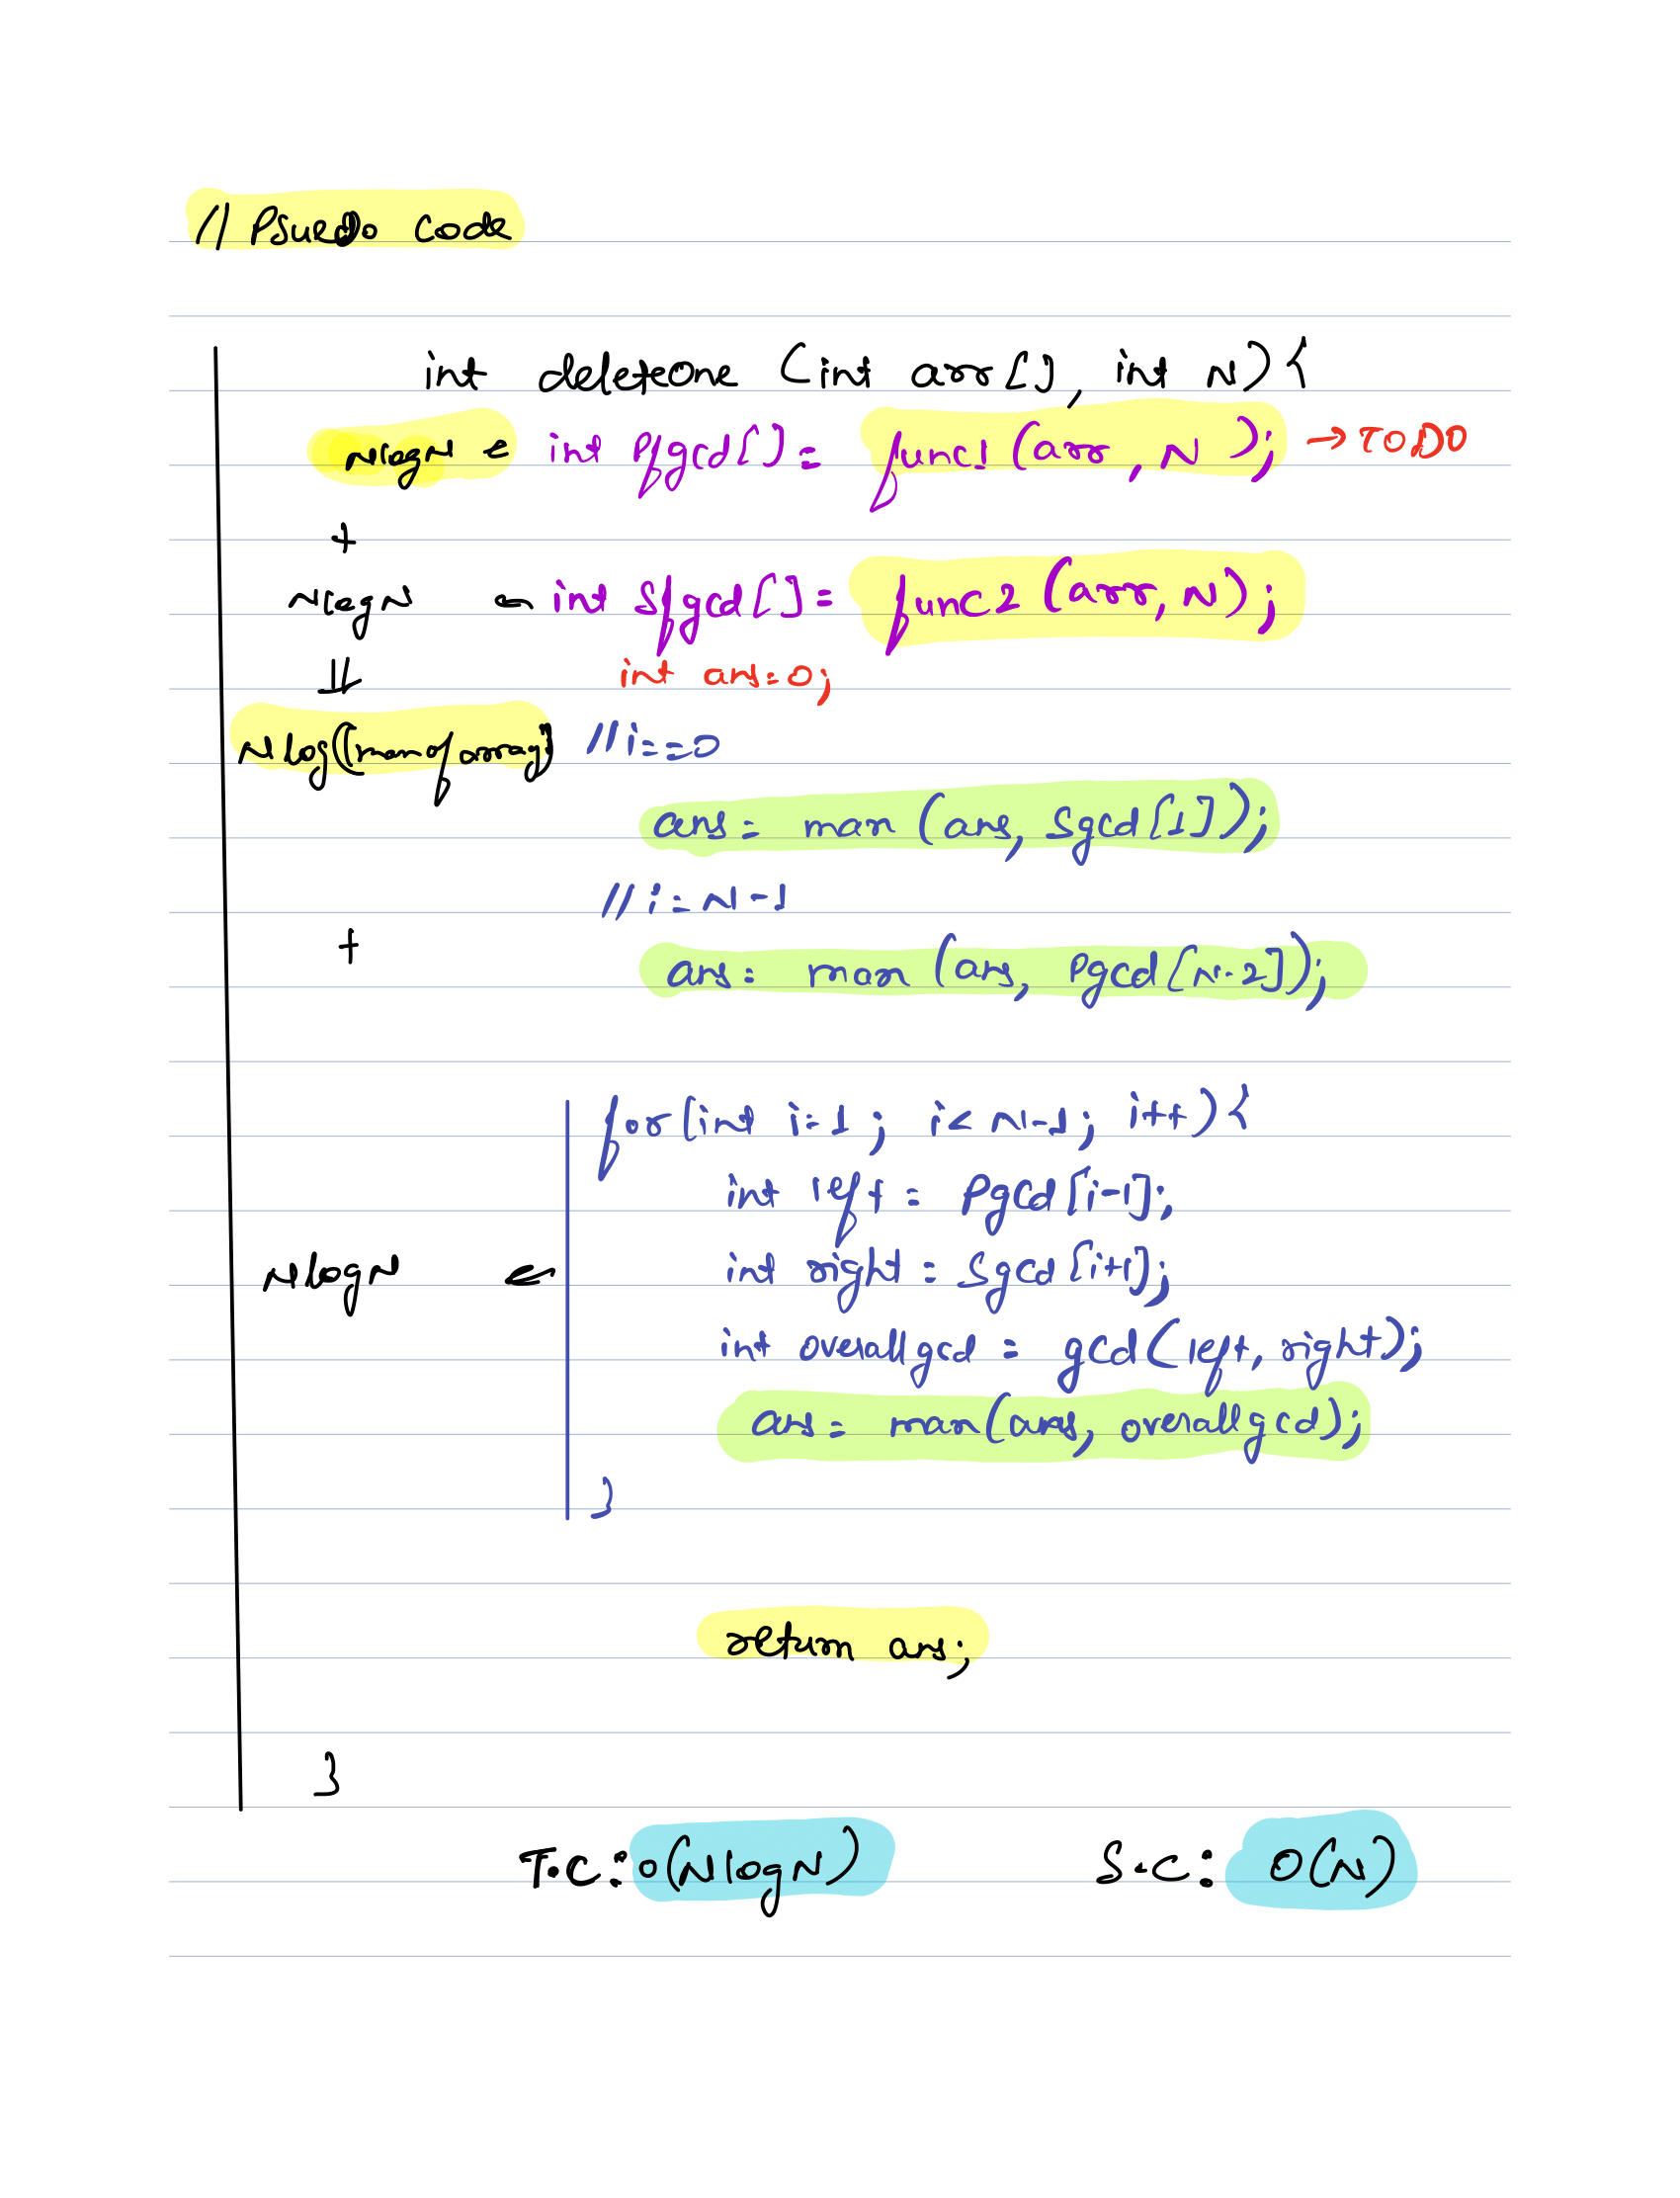 // Psuedo code
int deleteone (int arr[], int N) {
NlogN ← int Pfgcd[] = func1 (arr, N); → TODO
+
NlogN ← int Sfgcd[] = func2 (arr, N);
⇓ int ans=0;
Nlog((max of array) // i==0
ans= max (ans, Sgcd[1]);
// i=N-1
+ ans= max (ans, Pgcd[N-2]);
for(int i=1; i< N-1; i++) {
int left = Pgcd[i-1];
NlogN ← int right = Sgcd[i+1];
int overallgcd = gcd(left, right);
ans= max(ans, overallgcd);
}
return ans;
}
T.C: O(NlogN) S.C: O(N)